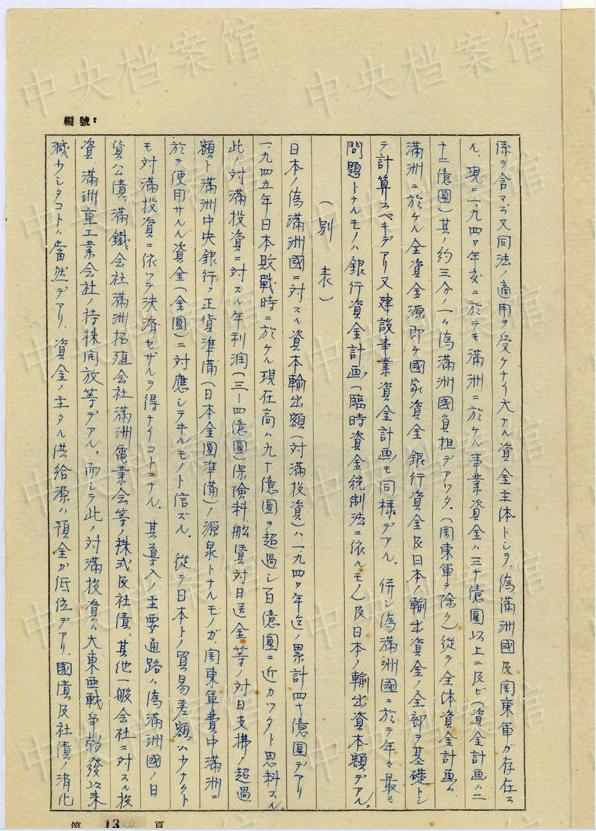 編號:
係ヲ含マズ又同法ノ適用ヲ受ケナイ大ナル資金主体トシテ、偽満洲國及関東軍ガ存在ス
ル、現ニ一九四四年度ニ於テモ満洲ニ於ケル事業資金ハ三十億圓以上ニ及ビ(資金計画ハ二
十二億圓)其ノ約三分ノ一ハ偽満洲國負担デアツタ。(関東軍ヲ除ク)従テ全体資金計画ハ
満洲ニ於ケル全資金源即チ國家資金銀行資金及日本ノ輸出資金ノ全部ヲ基礎トシ
テ計算スベキデアリ又建設事業資金計画モ同様デアル。併シ偽満洲國ニ於テ年々最モ
問題トナルモノハ銀行資金計画(臨時資金統制法ニ依ルモノ)及日本ノ輸出資本額デアル。
(別表)
日本ノ偽満洲國ニ対スル資本輸出額(対満投資)ハ一九四四年迄ノ累計四十億圓デアリ
一九四五年日本敗戰時ニ於ケル現在高ハ九十億圓ヲ超過シ百億圓ニ近カツタト思料スル
此ノ対満投資ニ対スル年利潤(三—四億圓)保険料船賃対日送金等ノ対日支拂ノ超過
額ト満洲中央銀行ノ正貨準備(日本金圓準備)ノ源泉トナルモノガ、関東軍費中満洲ニ
於テ使用サルル資金(金圓)ニ対應シテヰルモノト信ズル。従テ日本トノ貿易差額ハ少ナクト
モ対満投資ニ依ツテ決済セザルヲ得ナイコトニナル。其ノ導入ノ主要通路ハ偽満洲國ノ日
貨公債、満鐵会社満洲拓殖会社満洲電業会等ノ株式及社債、其他一般会社ニ対スル投
資満洲重工業会社ノ持株開放等デアル。而シテ此ノ対満投資ハ大東亜戰爭勃發以来
減少シタコトハ當然デアリ、資金ノ主タル供給源ハ預金ガ低位デアリ、國債及社債ノ消化
第 13 頁
中央档案馆